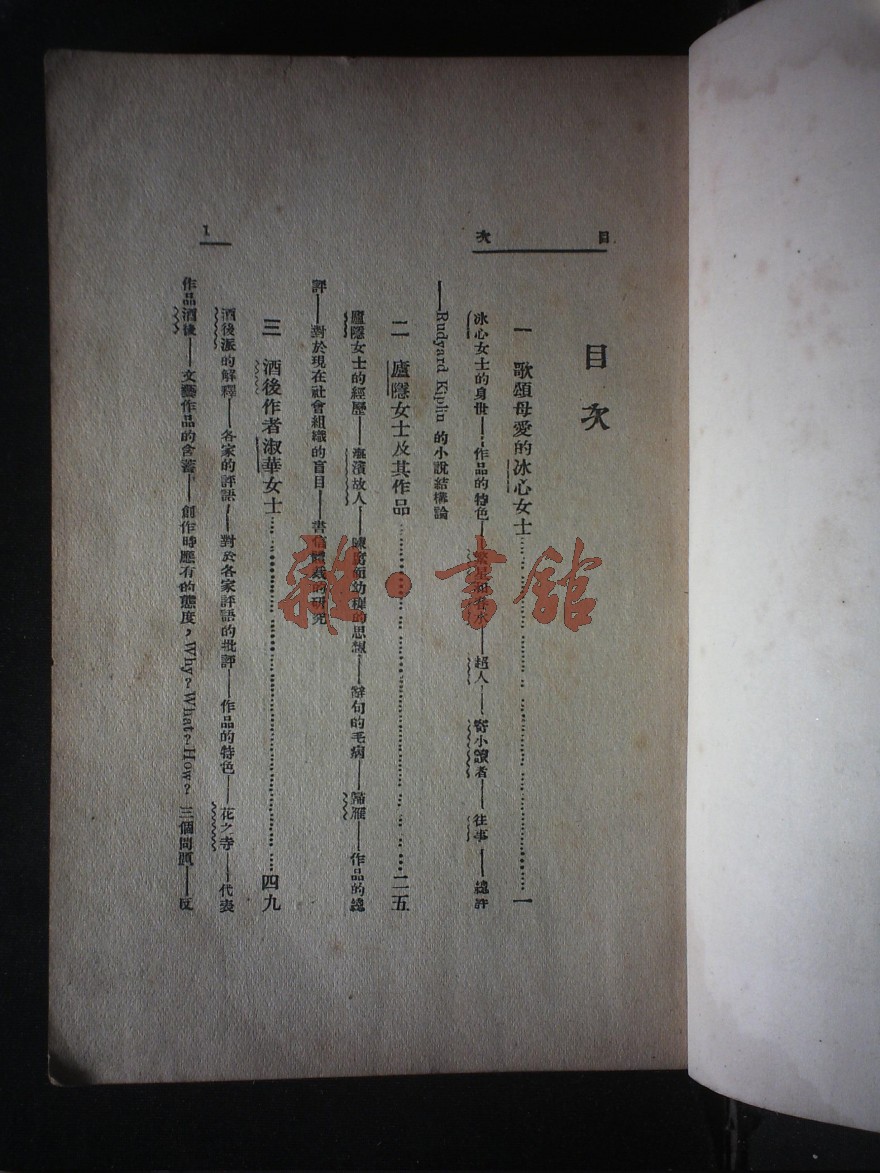 目次
目次
一　歌頌母愛的冰心女士……一
冰心女士的身世——作品的特色——繁星和春水——超人——寄小讀者——往事——總評
——Rudyard Kiplin 的小說結構論
二　廬隱女士及其作品……二五
廬隱女士的經歷——海濱故人——陳腐而幼稚的思想——辭句的毛病——歸雁——作品的總
評——對於現在社會組織的盲目——書信體裁的研究
三　酒後作者淑華女士……四九
酒後派的解釋——各家的評語——對於各家評語的批評——作品的特色——花之寺——代表
作品酒後——文藝作品的含蓄——創作時應有的態度，Why? What? How? 三個問題——反
1
雜·書館